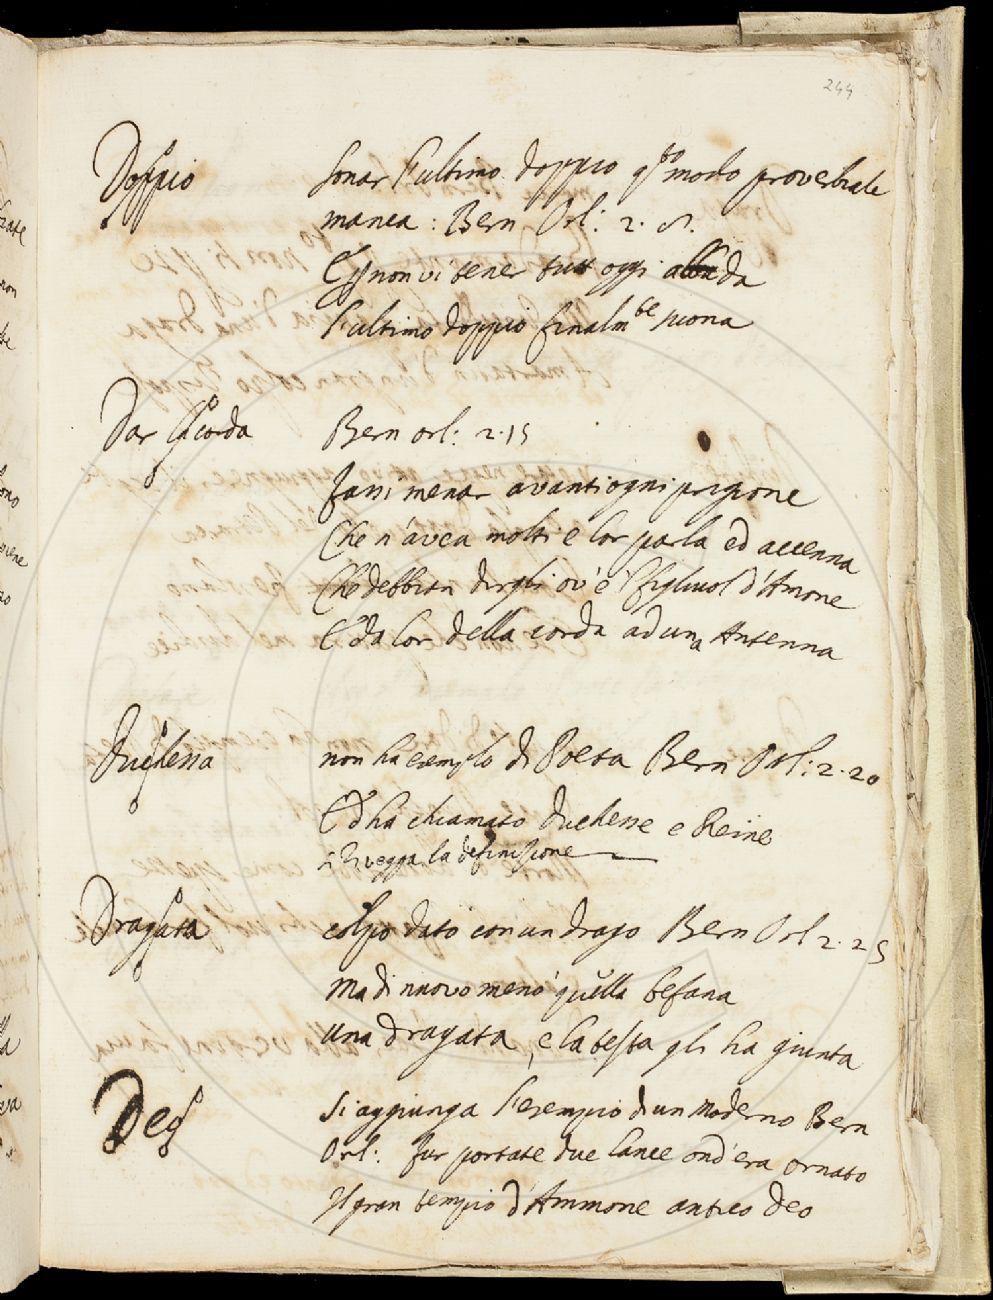 244
Doppio sonar l'ultimo doppio q.to modo proverbiale
manca: Bern Orl: 2. 8.
E non vi tener tutt oggi a bada
L'ultimo doppio finalm.te suona
Dar la corda Bern orl: 2.15
fassi menar avanti ogni prigione
Che n'avea molti e lor parla ed accenna
Che debbian dirgli ov'è 'l figliuol d'Amone
E da lor della corda ad una Antenna
Duchessa non ha esemplo di Poeta Bern Orl: 2.20
E d'ha chiamato Duchesse e Reine
si rivegga la definizione
Dragata colpo dato con un drago Bern Orl 2.25
Ma di nuovo menò quella befana
una dragata, e la testa gli ha giunta
Deo Si aggiunga l'esempio di un Moderno Bern
Orl: fur portate due lance ond'era ornato
Il gran tempio d'Ammone antico deo